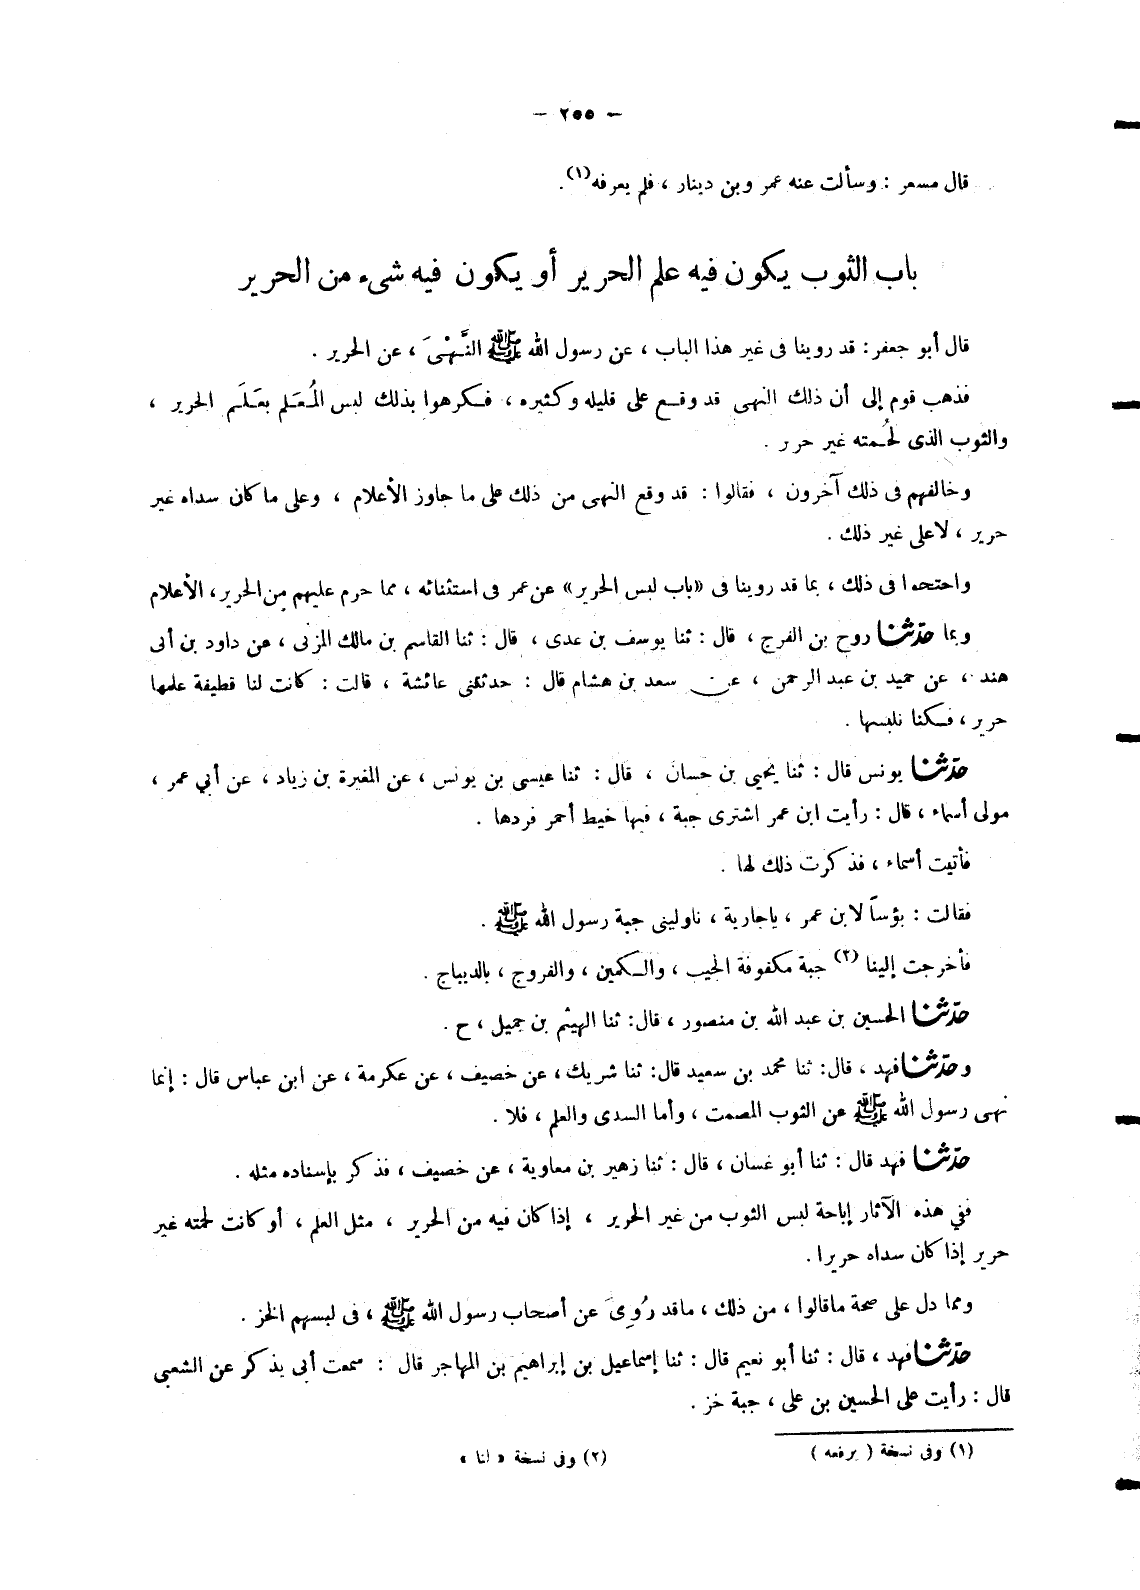 — ٢٥٥ —
قال مسعر : وسألت عنه عمر وبن دينار ، فلم يعرفه(١).
باب الثوب يكون فيه علم الحرير أو يكون فيه شىء من الحرير
قال أبو جعفر : قد روينا فى غير هذا الباب ، عن رسول الله ﷺ النَّهْىَ ، عن الحرير .
فذهب قوم إلى أن ذلك النهى قد وقع على قليله وكثيره ، فكرهوا بذلك لبس المُعَلم بعَلَم الحرير ،
والثوب الذى لحُمته غير حرير .
وخالفهم فى ذلك آخرون ، فقالوا : قد وقع النهى من ذلك على ما جاوز الأعلام ، وعلى ما كان سداه غير
حرير ، لا على غير ذلك .
واحتجوا فى ذلك ، بما قد روينا فى «باب لبس الحرير» عن عمر فى استثنائه ، مما حرم عليهم من الحرير ، الأعلام
وبما حدّثنا روح بن الفرج ، قال : ثنا يوسف بن عدى ، قال : ثنا القاسم بن مالك المزنى ، عن داود بن أبى
هند ، عن حميد بن عبد الرحمن ، عن سعد بن هشام قال : حدثتنى عائشة ، قالت : كانت لنا قطيفة علمها
حرير ، فكنا نلبسها .
حدّثنا يونس قال : ثنا يحيى بن حسان ، قال : ثنا عيسى بن يونس ، عن المغيرة بن زياد ، عن أبي عمر ،
مولى أسماء ، قال : رأيت ابن عمر اشترى جبة ، فيها خيط أحمر فردها .
فأتيت أسماء ، فذكرت ذلك لها .
فقالت : بؤساً لابن عمر ، ياجارية ، ناولينى جبة رسول الله ﷺ .
فأخرجت إلينا (٢) جبة مكفوفة الجيب ، والكمين ، والفروج ، بالديباج .
حدّثنا الحسين بن عبد الله بن منصور ، قال : ثنا الهيثم بن جميل ، ح .
وحدّثنا فهد ، قال : ثنا محمد بن سعيد قال : ثنا شريك ، عن خصيف ، عن عكرمة ، عن ابن عباس قال : إنما
نهى رسول الله ﷺ عن الثوب المصمت ، وأما السدى والعلم ، فلا .
حدّثنا فهد قال : ثنا أبو غسان ، قال : ثنا زهير بن معاوية ، عن خصيف ، فذكر بإسناده مثله .
ففي هذه الآثار إباحة لبس الثوب من غير الحرير ، إذا كان فيه من الحرير ، مثل العلم ، أو كانت لحمته غير
حرير إذا كان سداه حريرا .
ومما دل على صحة ماقالوا ، من ذلك ، ماقد رُوِىَ عن أصحاب رسول الله ﷺ ، فى لبسهم الخز .
حدّثنا فهد ، قال : ثنا أبو نعيم قال : ثنا إسماعيل بن إبراهيم بن المهاجر قال : سمعت أبى يذكر عن الشعبى
قال : رأيت على الحسين بن على ، جبة خز .
(١) وفى نسخة ( يرفعه )
(٢) وفى نسخة « لنا »